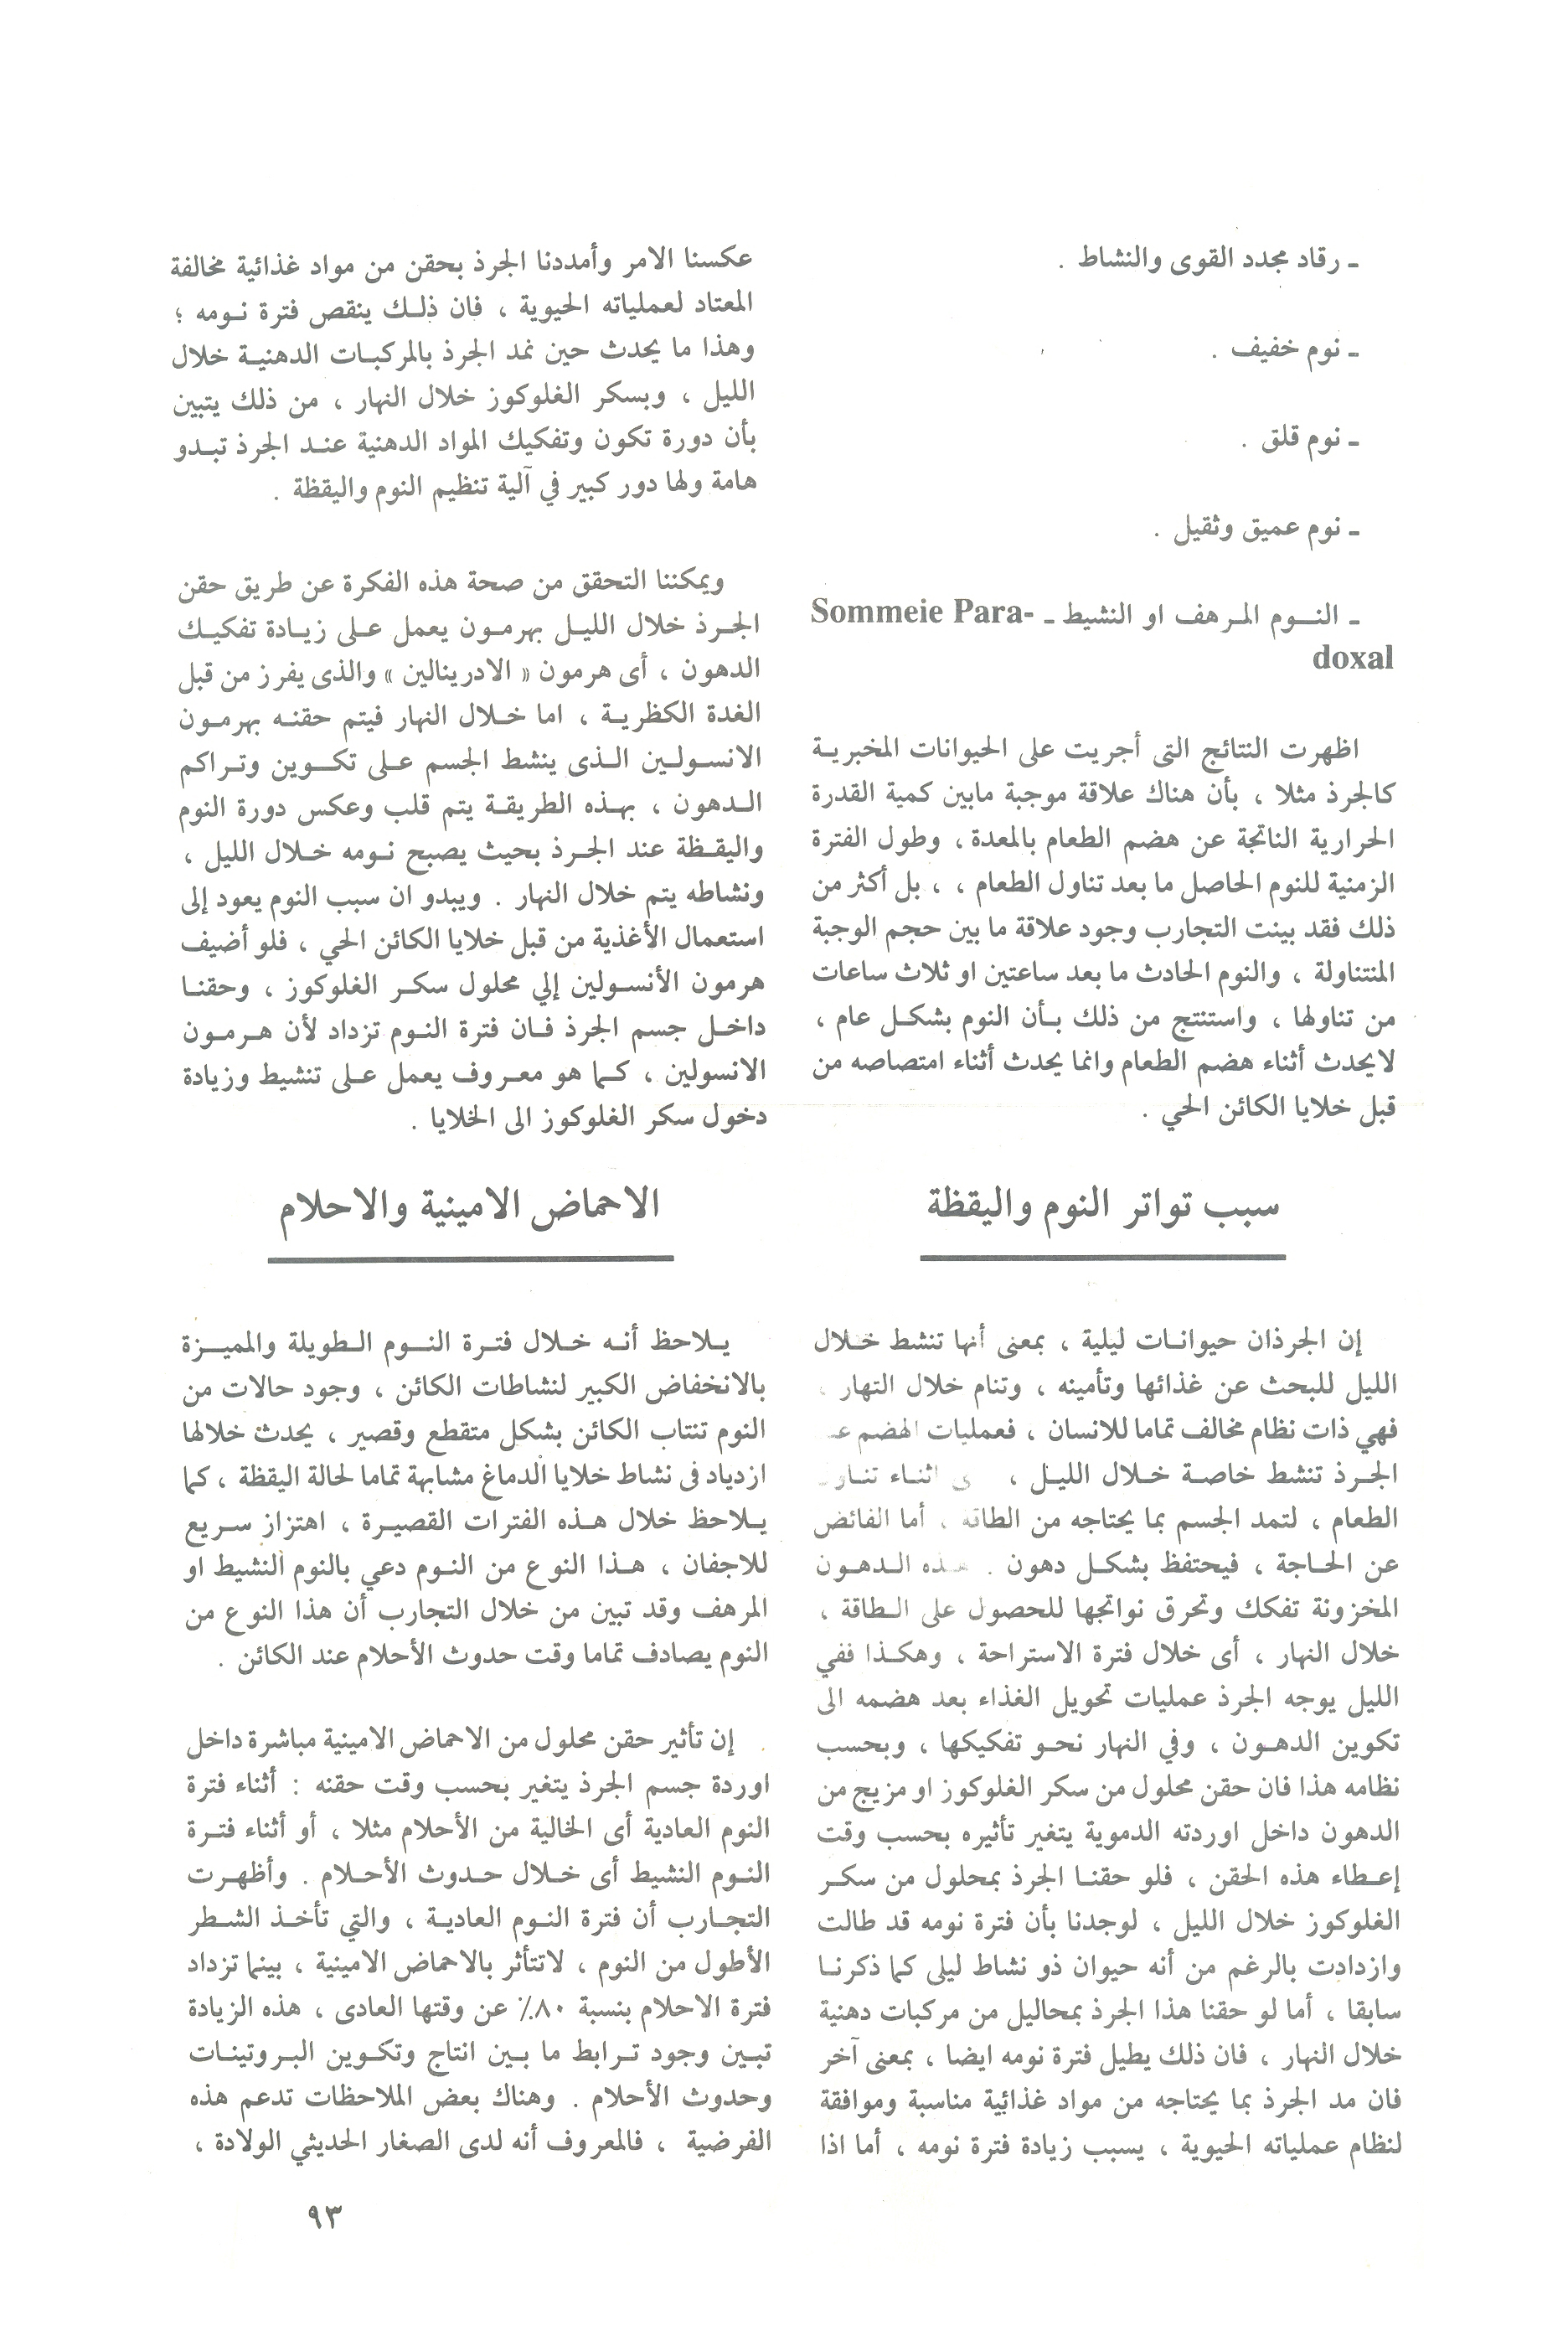 ـ رقاد مجدد القوى والنشاط .
ـ نوم خفيف .
ـ نوم قلق .
ـ نوم عميق وثقيل .
ـ النـوم المرهف او النشيط ـ Sommeie Para-
doxal
اظهرت النتائج التى أجريت على الحيوانات المخبرية
كالجرذ مثلا ، بأن هناك علاقة موجبة مابين كمية القدرة
الحرارية الناتجة عن هضم الطعام بالمعدة ، وطول الفترة
الزمنية للنوم الحاصل ما بعد تناول الطعام ، ، بل أكثر من
ذلك فقد بينت التجارب وجود علاقة ما بين حجم الوجبة
المنتناولة ، والنوم الحادث ما بعد ساعتين او ثلاث ساعات
من تناولها ، واستنتج من ذلك بأن النوم بشكل عام ،
لايحدث أثناء هضم الطعام وانما يحدث أثناء امتصاصه من
قبل خلايا الكائن الحي .
سبب تواتر النوم واليقظة
إن الجرذان حيوانات ليلية ، بمعنى أنها تنشط خلال
الليل للبحث عن غذائها وتأمينه ، وتنام خلال النهار ،
فهي ذات نظام مخالف تماما للانسان ، فعمليات الهضم
الجرذ تنشط خاصة خلال الليل ، اثناء
الطعام ، لتمد الجسم بما يحتاجه من الطاقة ، أما الفائض
عن الحاجة ، فيحتفظ بشكل دهون . هذه الدهون
المخزونة تفكك وتحرق نواتجها للحصول على الطاقة ،
خلال النهار ، أى خلال فترة الاستراحة ، وهكذا ففي
الليل يوجه الجرذ عمليات تحويل الغذاء بعد هضمه الى
تكوين الدهون ، وفي النهار نحو تفكيكها ، وبحسب
نظامه هذا فان حقن محلول من سكر الغلوكوز او مزيج من
الدهون داخل اوردته الدموية يتغير تأثيره بحسب وقت
إعطاء هذه الحقن ، فلو حقنا الجرذ بمحلول من سكر
الغلوكوز خلال الليل ، لوجدنا بأن فترة نومه قد طالت
وازدادت بالرغم من أنه حيوان ذو نشاط ليلى كما ذكرنا
سابقا ، أما لو حقنا هذا الجرذ بمحاليل من مركبات دهنية
خلال النهار ، فان ذلك يطيل فترة نومه ايضا ، بمعنى آخر
فان مد الجرذ بما يحتاجه من مواد غذائية مناسبة وموافقة
لنظام عملياته الحيوية ، يسبب زيادة فترة نومه ، أما اذا
عكسنا الامر وأمددنا الجرذ بحقن من مواد غذائية مخالفة
المعتاد لعملياته الحيوية ، فان ذلك ينقص فترة نومه ؛
وهذا ما يحدث حين نمد الجرذ بالمركبات الدهنية خلال
الليل ، وبسكر الغلوكوز خلال النهار ، من ذلك يتبين
بأن دورة تكون وتفكيك المواد الدهنية عند الجرذ تبدو
هامة ولها دور كبير في آلية تنظيم النوم واليقظة .
ويمكننا التحقق من صحة هذه الفكرة عن طريق حقن
الجرذ خلال الليل بهرمون يعمل على زيادة تفكيك
الدهون ، أى هرمون « الادرينالين » والذى يفرز من قبل
الغدة الكظرية ، اما خلال النهار فيتم حقنه بهرمون
الانسولين الذى ينشط الجسم على تكوين وتراكم
الدهون ، بهذه الطريقة يتم قلب وعكس دورة النوم
واليقظة عند الجرذ بحيث يصبح نومه خلال الليل ،
ونشاطه يتم خلال النهار . ويبدو ان سبب النوم يعود إلى
استعمال الأغذية من قبل خلايا الكائن الحي ، فلو أضيف
هرمون الأنسولين إلي محلول سكر الغلوكوز ، وحقنا
داخل جسم الجرذ فان فترة النوم تزداد لأن هرمون
الانسولين ، كما هو معروف يعمل على تنشيط وزيادة
دخول سكر الغلوكوز الى الخلايا .
الاحماض الامينية والاحلام
يلاحظ أنه خلال فترة النوم الطويلة والمميزة
بالانخفاض الكبير لنشاطات الكائن ، وجود حالات من
النوم تنتاب الكائن بشكل متقطع وقصير ، يحدث خلالها
ازدياد فى نشاط خلايا الدماغ مشابهة تماما لحالة اليقظة ، كما
يلاحظ خلال هذه الفترات القصيرة ، اهتزاز سريع
للاجفان ، هذا النوع من النوم دعي بالنوم النشيط او
المرهف وقد تبين من خلال التجارب أن هذا النوع من
النوم يصادف تماما وقت حدوث الأحلام عند الكائن .
إن تأثير حقن محلول من الاحماض الامينية مباشرة داخل
اوردة جسم الجرذ يتغير بحسب وقت حقنه : أثناء فترة
النوم العادية أى الخالية من الأحلام مثلا ، أو أثناء فترة
النوم النشيط أى خلال حدوث الأحلام . وأظهرت
التجارب أن فترة النوم العادية ، والتي تأخذ الشطر
الأطول من النوم ، لاتتأثر بالاحماض الامينية ، بينما تزداد
فترة الاحلام بنسبة ٨٠٪ عن وقتها العادى ، هذه الزيادة
تبين وجود ترابط ما بين انتاج وتكوين البروتينات
وحدوث الأحلام . وهناك بعض الملاحظات تدعم هذه
الفرضية ، فالمعروف أنه لدى الصغار الحديثي الولادة ،
٩٣